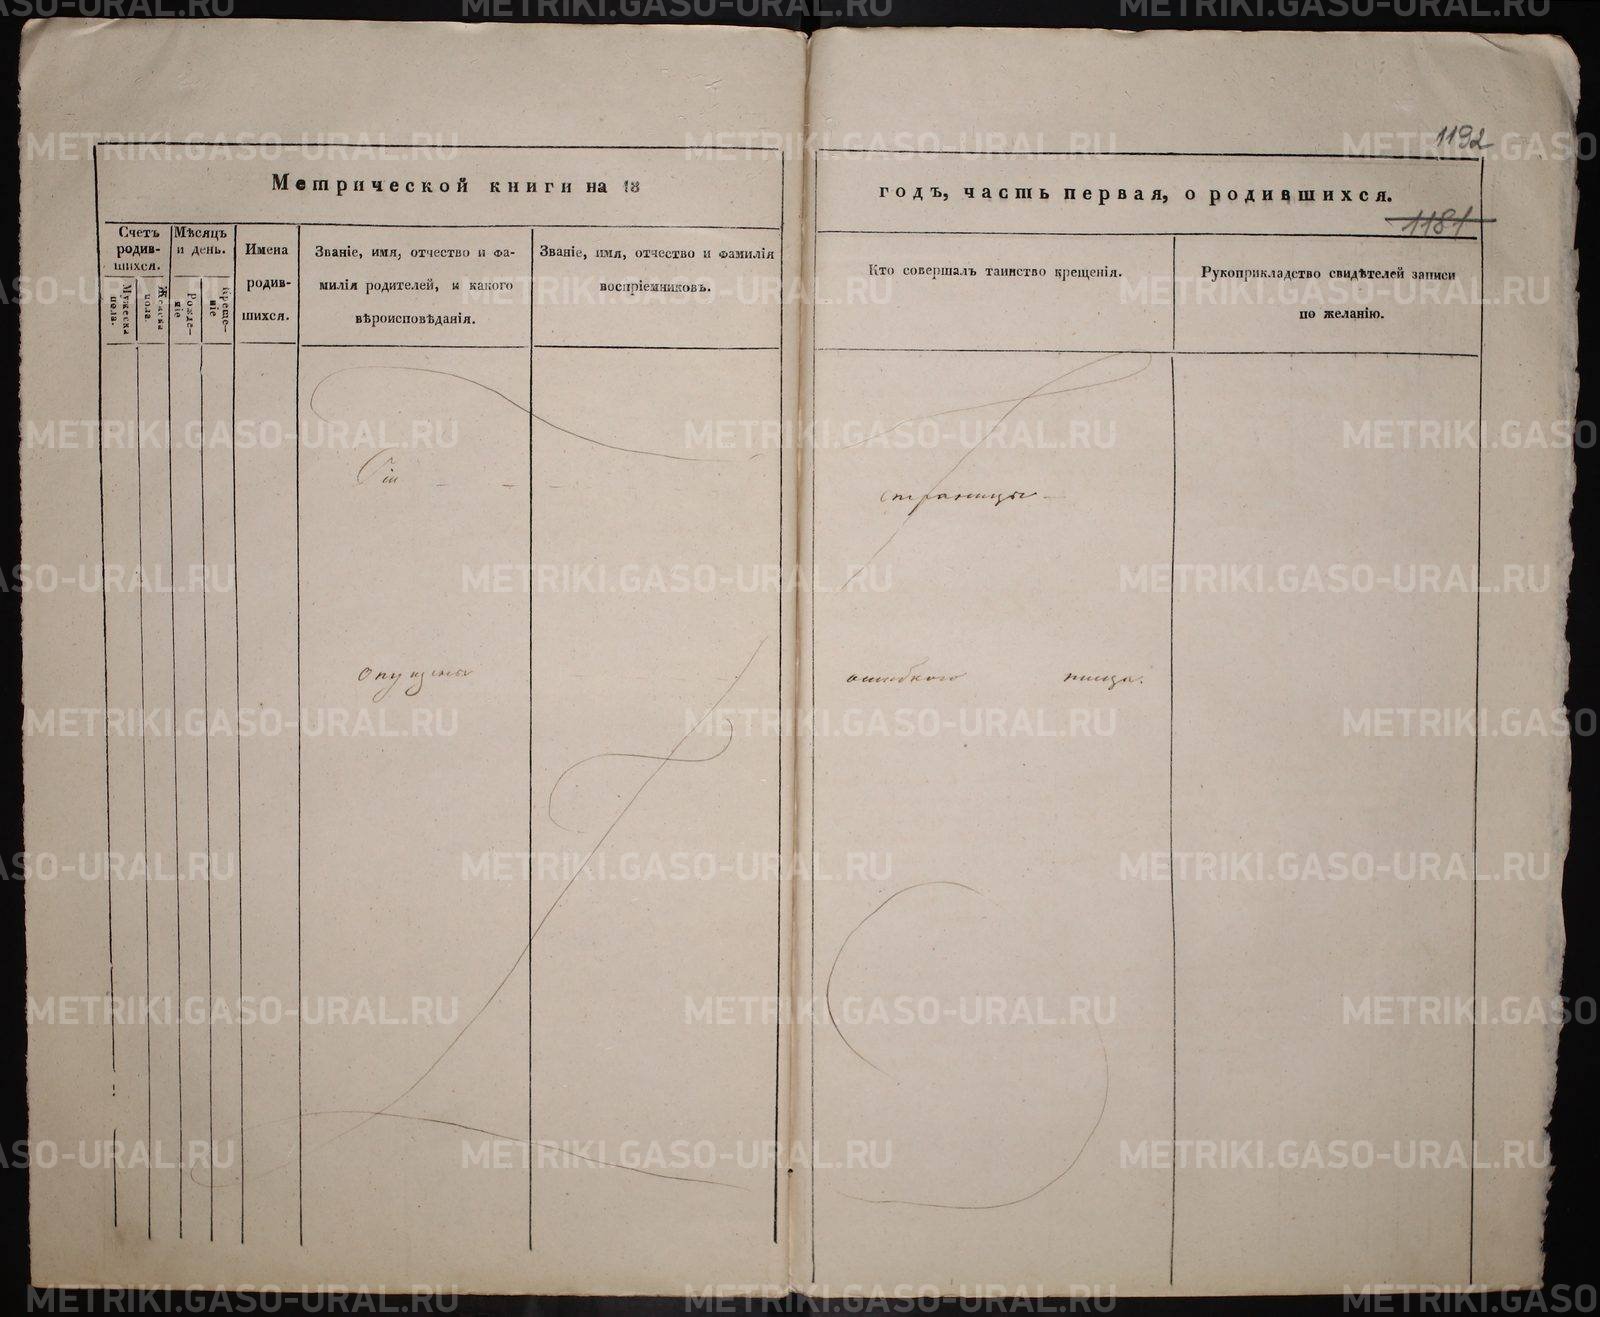 1192
Метрической книги на 18
годъ, часть первая, о родившихся.
1181
Счетъ родив-шихся.
Мѣсяцъ и день.
Мужеска пола.
Женска пола.
Рожде-ніе
Креще-ніе
Имена родив-шихся.
Званіе, имя, отчество и фа-
милія родителей, и какого
вѣроисповѣданія.
Званіе, имя, отчество и фамилія
воспріемниковъ.
Кто совершалъ таинство крещенія.
Рукоприкладство свидѣтелей записи
по желанію.
Сіи - - - страницы -
опущены ошибкою писца.
METRIKI.GASO-URAL.RU